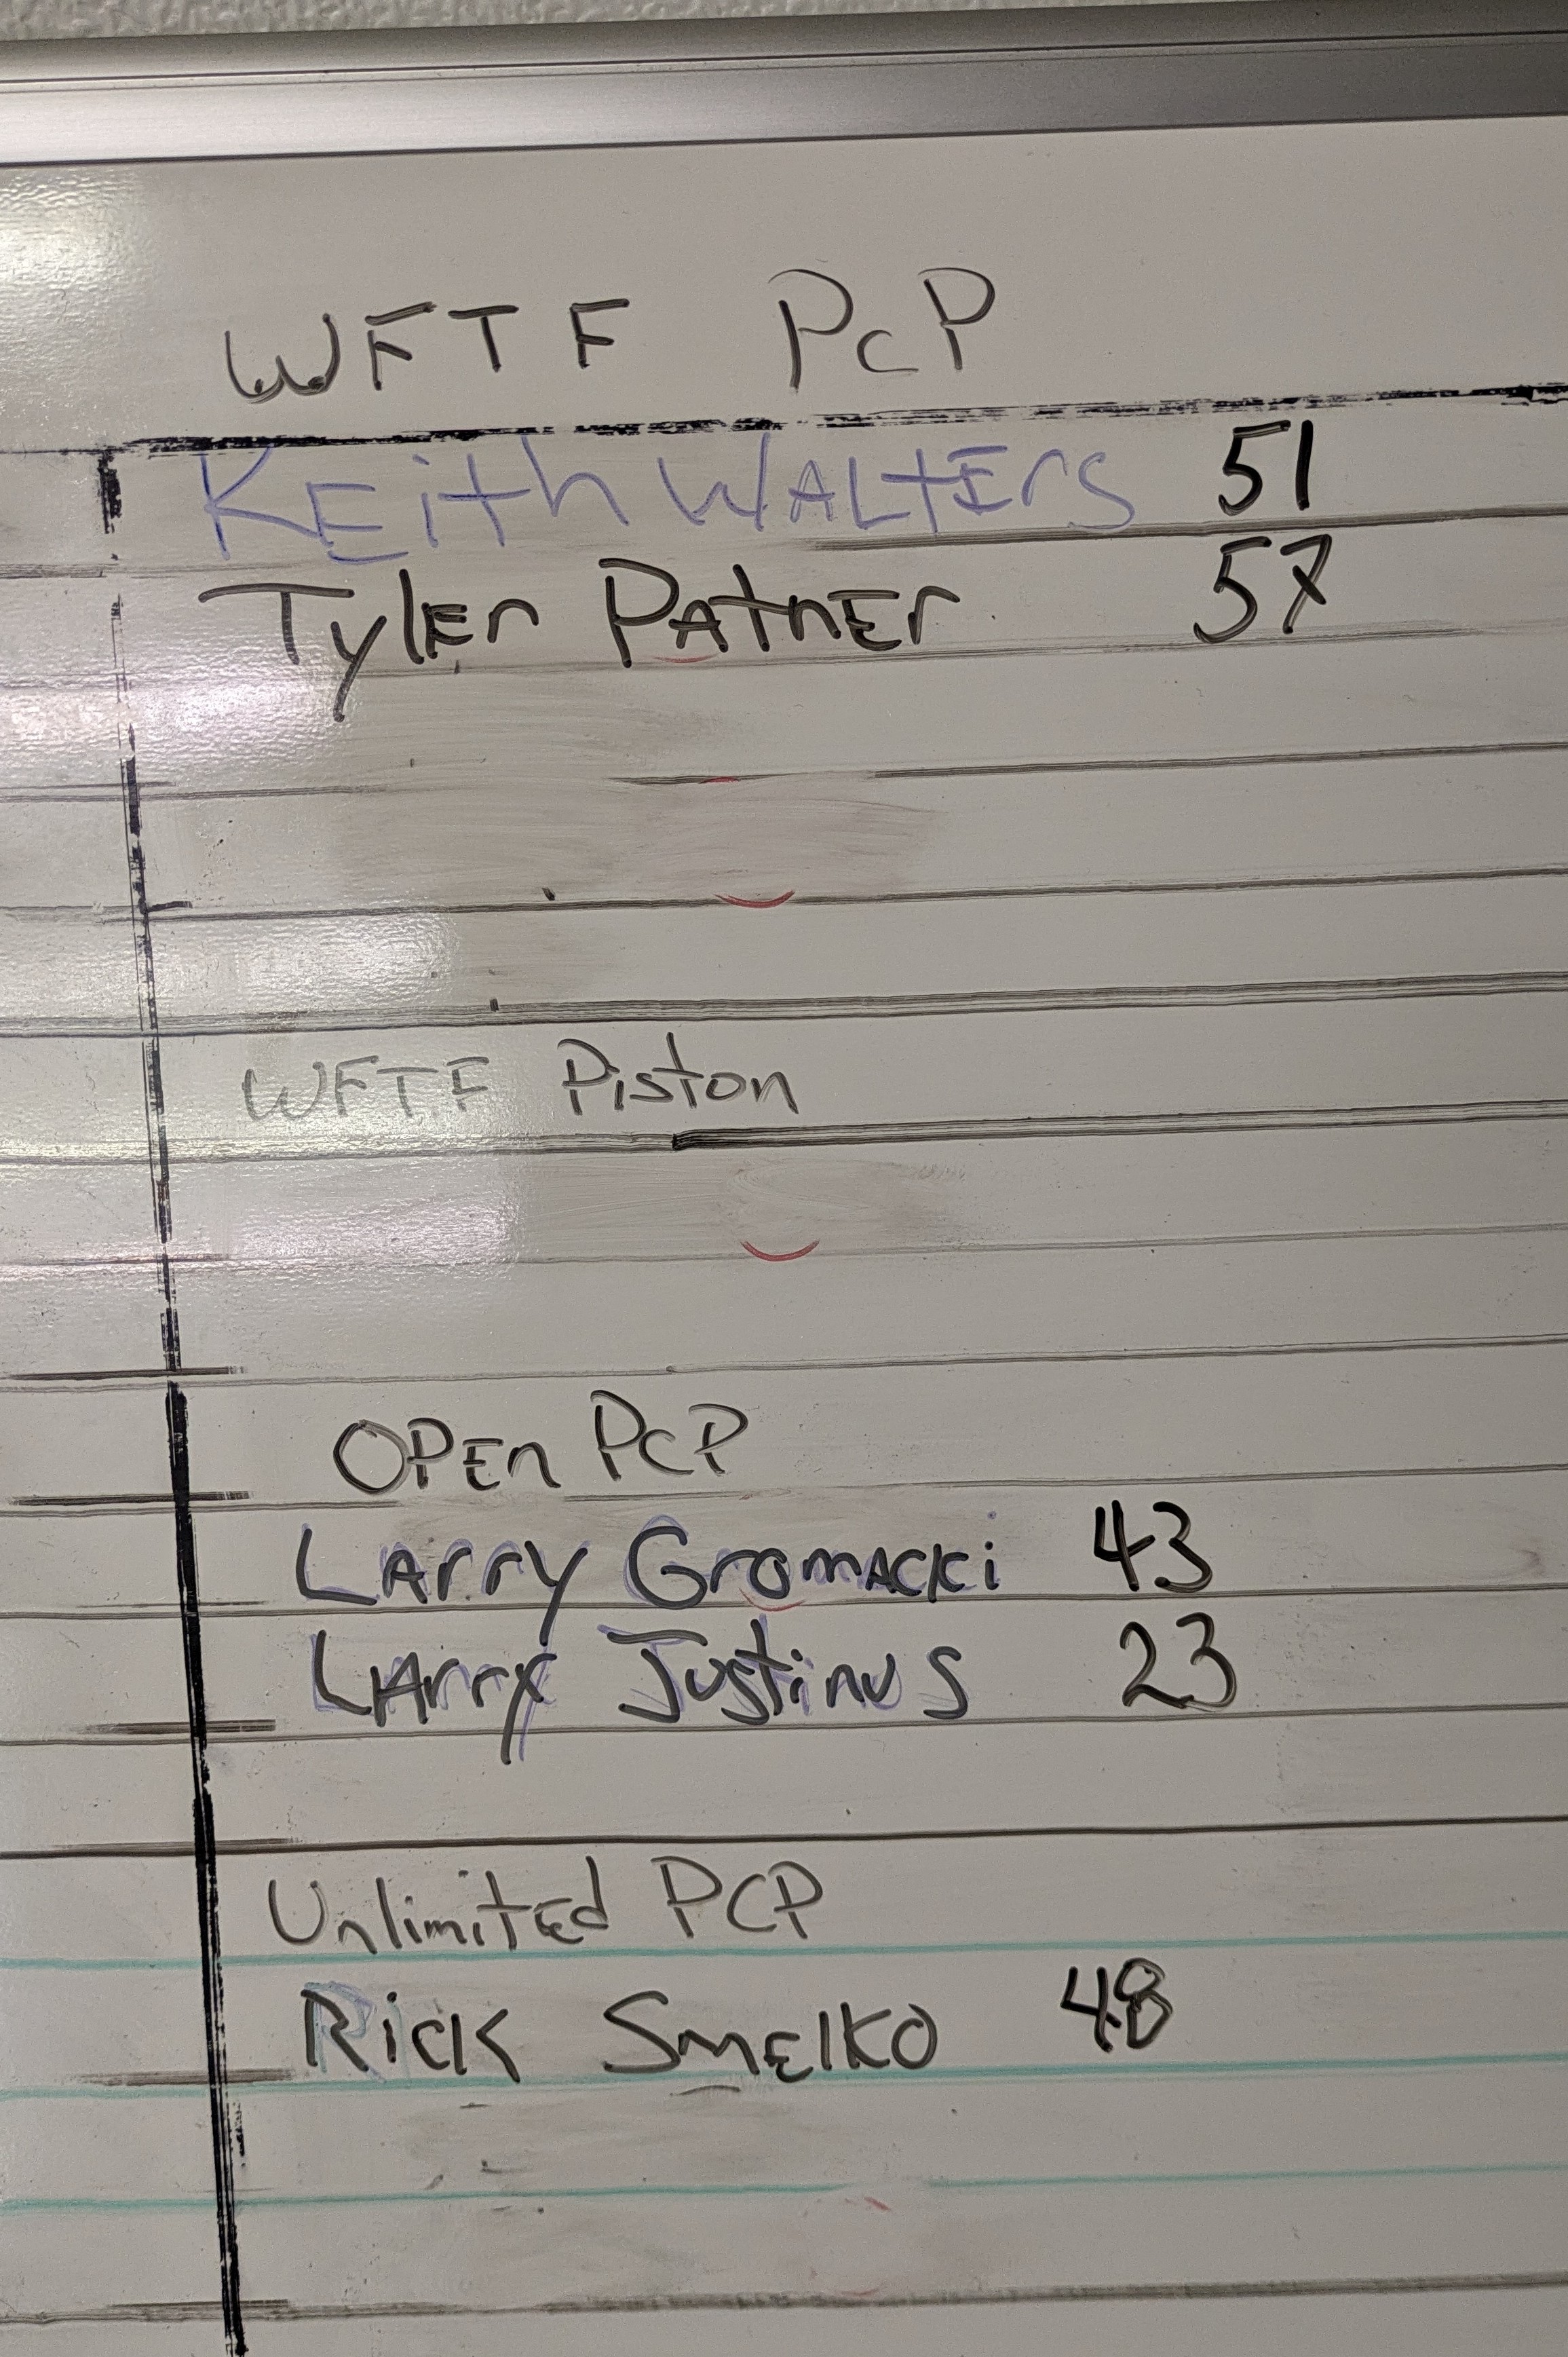 WFTF PCP
KEith WALtErs 51
TylEr PAtnEr 57
WFTF Piston
OPEn PCP
LArry GromAcki 43
LArry Justinus 23
UnlimitEd PCP
Rick SmElko 48